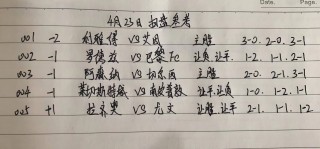 Date. Page.
4月23日 扫盘参考
001 -2 利雅得 VS 艾因 主胜 3-0. 2-0. 3-1
002 -1 VS 巴黎FC 让负.让平. 1-2. 1-1. 2-1
003 -1 阿森纳 VS 切尔西 主胜 2-0. 2-1. 3-1
004 -1 莱切斯特城 VS 南安普敦 让平.让负 1-0. 1-1. 1-2
005 +1 拉齐奥 VS 尤文 让胜.让平 2-1. 1-1. 1-2